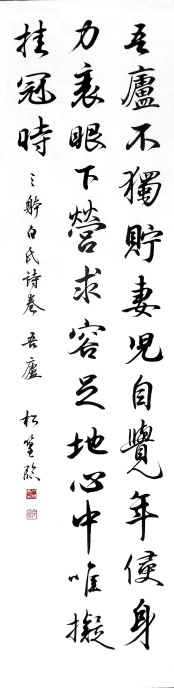 吾廬不獨貯妻兒自覺年侵身
力衰眼下營求容足地心中唯擬
挂冠時
三跡白氏詩卷 吾廬 松篁臨